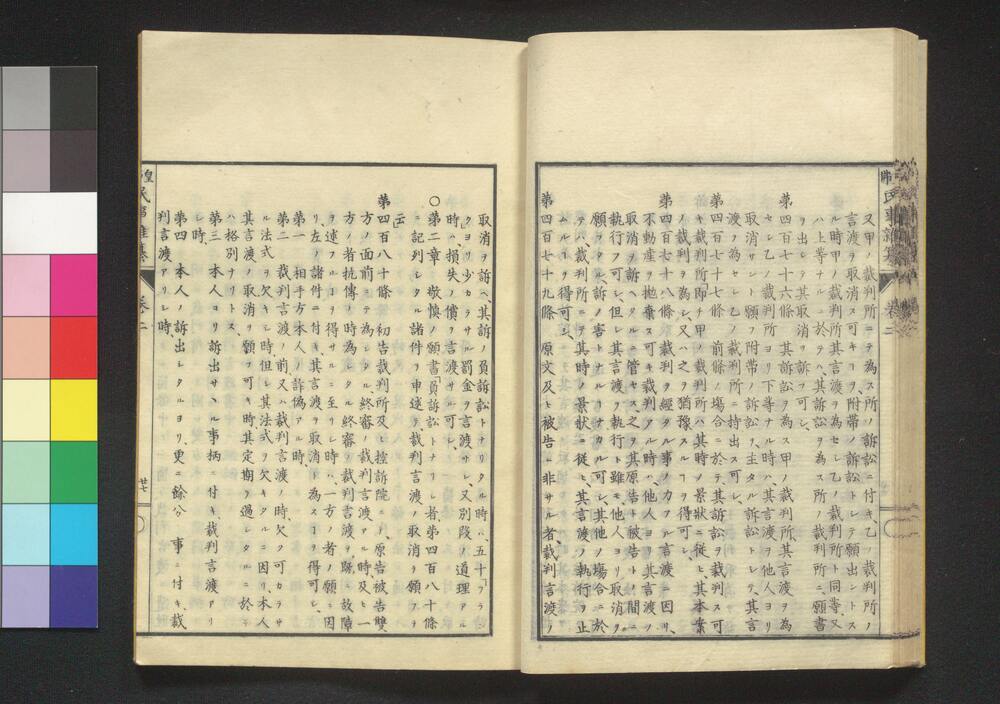 又甲ノ裁判所ニテ為ス所ノ訴訟ニ付キ乙ノ裁判所ノ
言渡ヲ取消ス可キヿヲ附帯ノ訴訟トシテ願出ントス
ル時甲ノ裁判所其言渡ヲ為セシ乙ノ裁判所ト同等又
ハ上等ナルニ於テハ其訴訟ヲ為ス所ノ裁判所ニ願書
ヲ出シテ其取消ヲ訴フ可シ
第四百七十六條 其訴訟ヲ為ス甲ノ裁判所其言渡ヲ為
セシ乙ノ裁判所ヨリ下等ナル時ハ其言渡ヲ他人ヨリ
取消サント願フ附帯ノ訴訟ヲ主タル訴訟トシテ其言
渡ヲ為セシ乙ノ裁判所ニ持出ス可シ
第四百七十七條 前條ノ塲合ニ於テ其訴訟ヲ裁判ス可
キ裁判所「即チ甲ノ裁判所」ハ其時ノ景狀ニ從ヒ其本案
ノ裁判ヲ為シ又ハ之ヲ猶豫スルヿヲ得可シ
第四百七十八條 裁判ヲ經タル事ノ力アル言渡ニ因リ
不動產ヲ抛棄ス可キ裁判アル時ハ他人ヨリ其言渡ヲ
取消ノ訴ヘタルニ管セス之ヲ其原告ト被告トノ間ニ
執行フ可シ但シ其言渡ヲ執行フト雖モ他人ヨリ取消ヲ
願フタル訴ノ害トナルヿナカル可シ其他ノ塲合ニ於
テハ裁判所ニテ其時ノ景狀ニ從ヒ其言渡ノ執行ヲ止
ムルヿヲ得可シ
第四百七十九條 原文及ヒ被告ニ非サル者裁判言渡ノ
取消ヲ訴ヘ其訴ノ負訴訟トナリタル時ハ五十「フラン
ク」ヨリ少カラサル罰金ヲ言渡サレ又別段ノ道理アル
時ハ損失ノ償ヲ言渡サル可シ
〇第二章 敬愼ノ願書「負訴訟トナリシ者第四百八十條
ニ記列シタル諸件ヲ申述テ裁判言渡ノ取消ヲ願フヿ
第四百八十條 初告裁判所及ヒ控訴院ニテ原告被告雙
方ノ面前ニテ為シタル終審ノ裁判言渡アル時及ヒ一
方ノ者抗傳ノ時為シタル終審ノ裁判言渡ヲ賜テ故障
ヲ述フルヿヲ得サルニ至リシ時ハ一方ノ者ノ願ニ因
リ左ノ諸件ニ付キ其言渡ヲ取消ト為スヿヲ得可シ
第一 相手方本人ノ詐偽アル時
第二 裁判言渡ノ前又ハ裁判言渡ノ時欠ク可カラサ
ル法式ヲ欠キシ時但シ其法式ヲ欠キタルニ因リ本人
其言渡ノ取消ヲ願フ可キ時其定期ヲ過シタルニ於テ
ハ格別ナリトス
第三 本人ヨリ訴出サヘル事柄ニ付キ裁判言渡アリ
シ時
第四 本人ノ訴出シタルヨリ更ニ餘分ノ事ニ付キ裁
判言渡アリシ時
民事
卷二
廿七